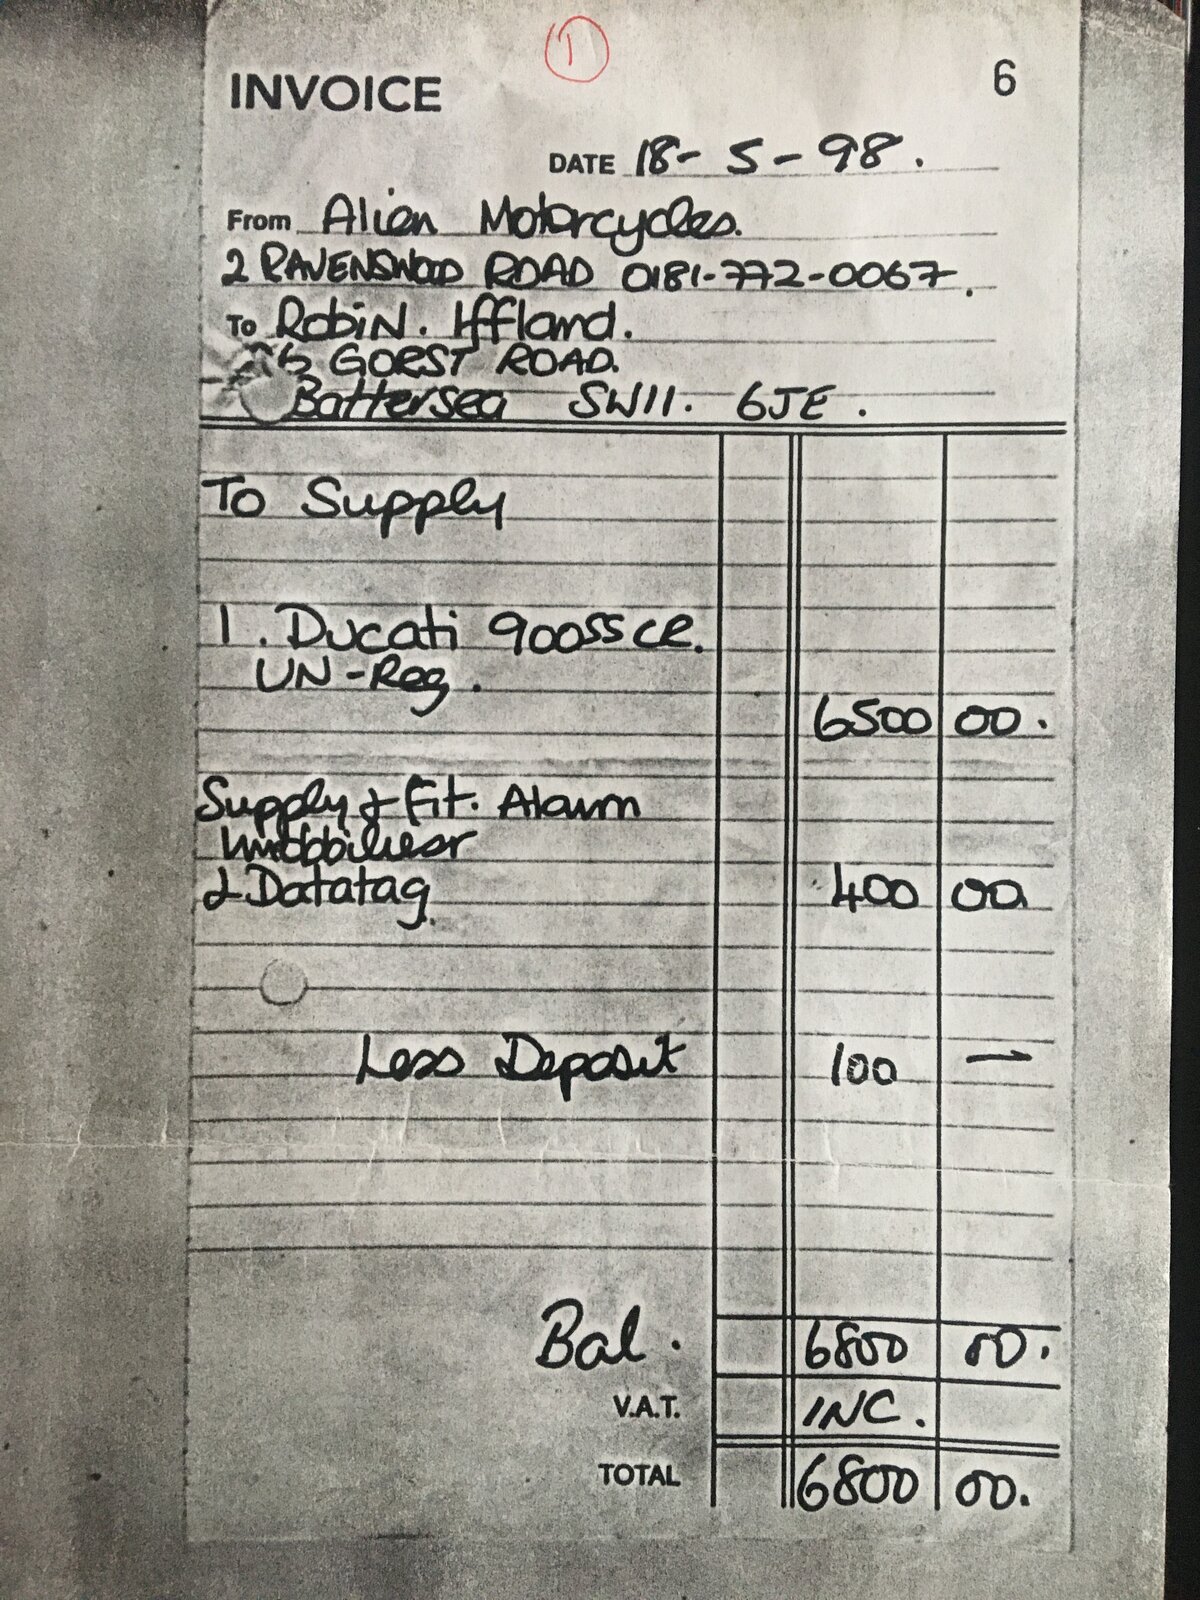 1
INVOICE 6
DATE 18-5-98.
From Alien Motorcycles.
2 RAVENSWOOD ROAD 0181-772-0067.
To Robin. Iffland.
GORST ROAD.
Battersea SW11. 6JE.
To Supply
1. Ducati 900SS CR.
UN-Reg.
6500 00.
Supply & Fit. Alarm
& Datatag. 400 00
Less Deposit 100 —
Bal. 6800 00.
V.A.T. INC.
TOTAL 6800 00.